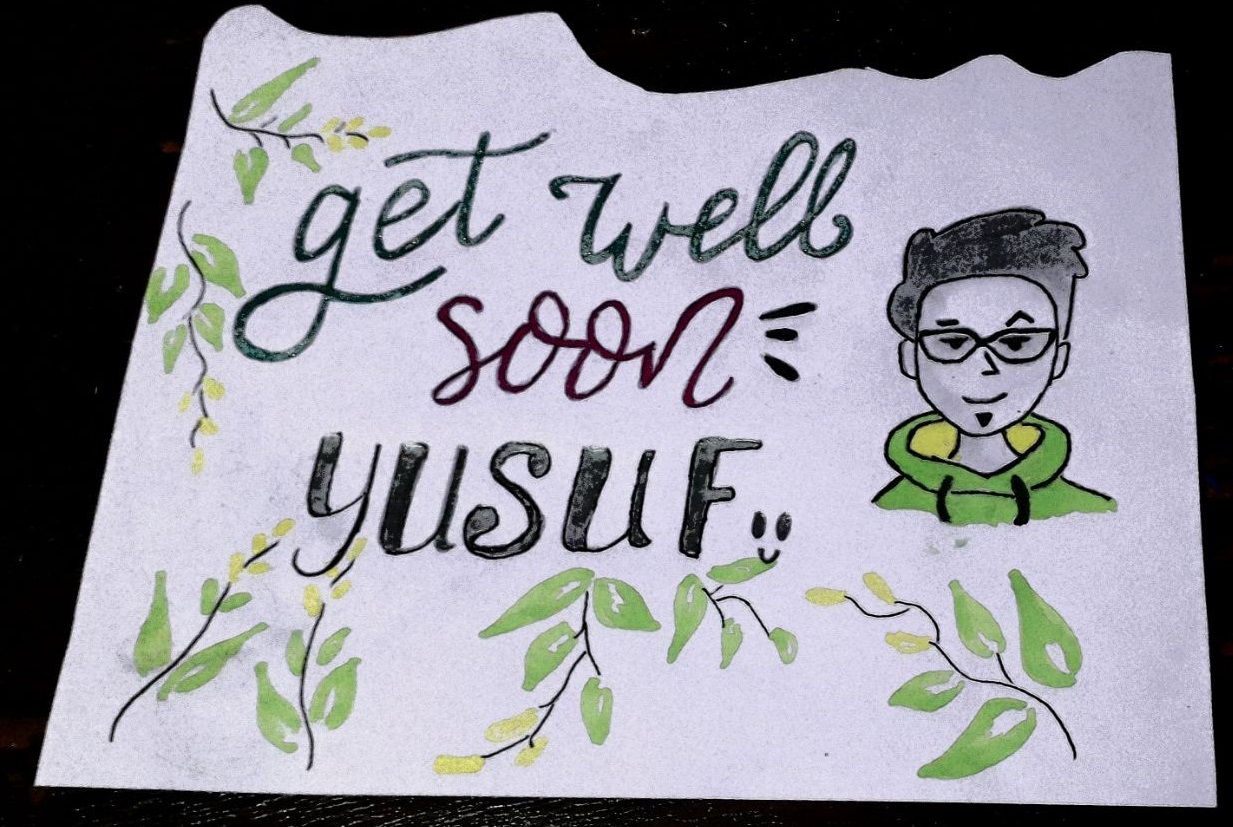 get well
soon
YUSUF